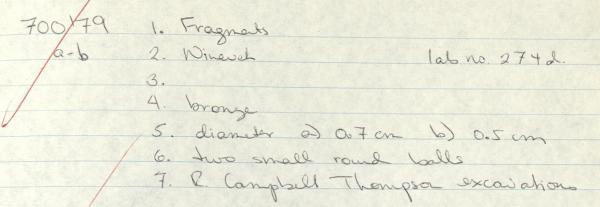 700/79 1. Fragments
a-b 2. Nineveh lab no. 274d.
3.
4. bronze
5. diameter a) 0.7 cm b) 0.5 cm
6. two small round balls
7. R. Campbell Thompson excavations